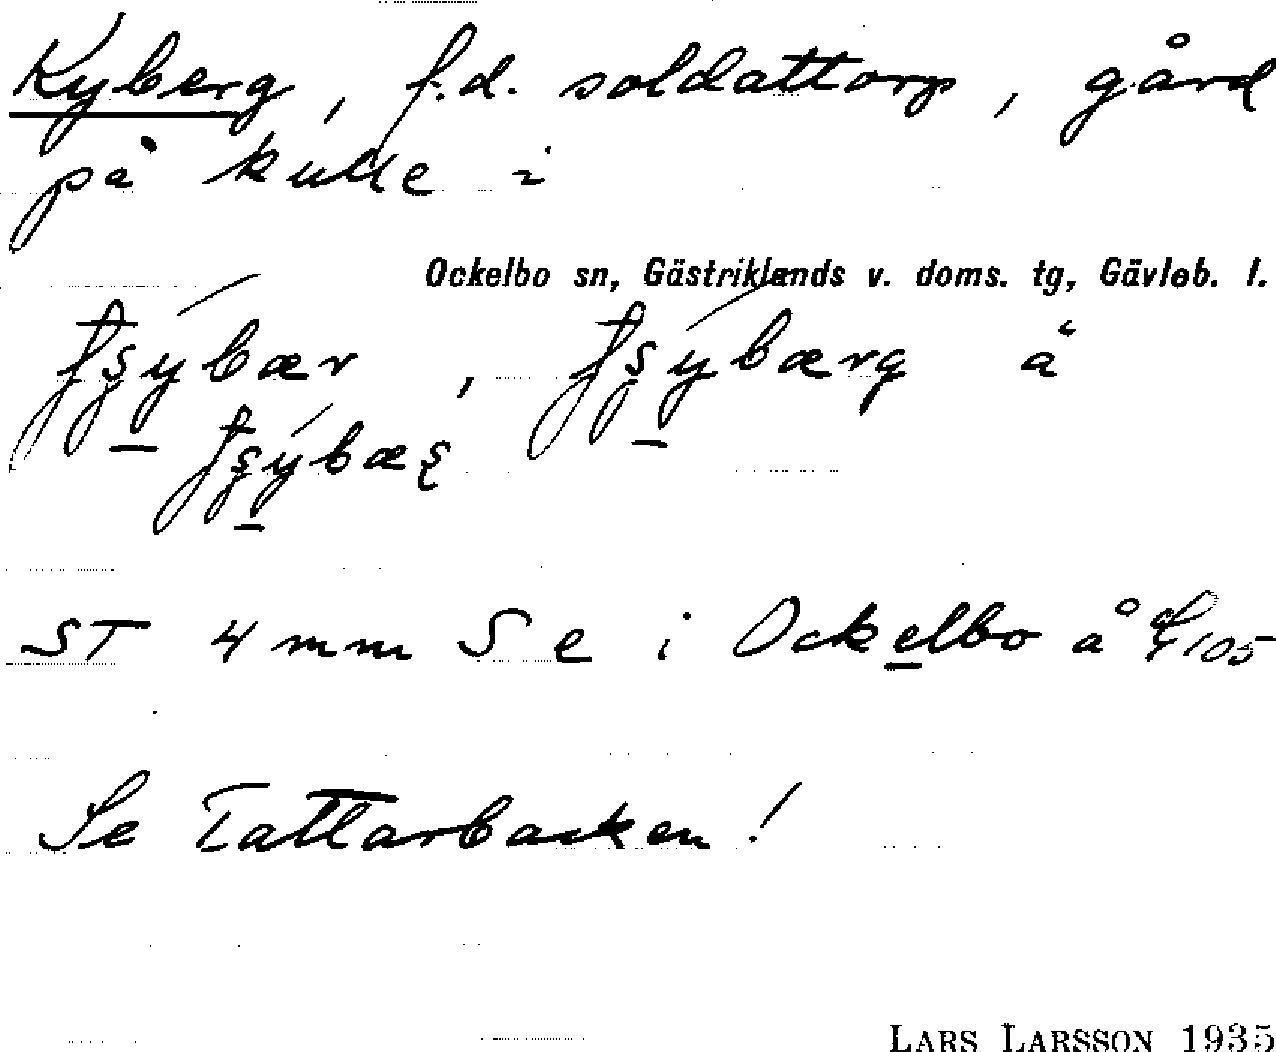 Kyberg, f.d. soldattorp, gård
på kulle i
Ockelbo sn, Gästriklands v. doms. tg, Gävleb. l.
ST 4 mm S e i Ockelbo å
Se Tattarbacken!
LARS LARSSON 1935